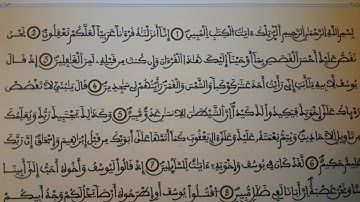 بسم الله الرحمن الرحيم الر تلك ءايت الكتب المبين ① إنا أنزلنه قرءنا عربيا لعلكم تعقلون ② نحن
نقص عليك أحسن القصص بما أوحينا إليك هذا القرءان وإن كنت من قبله لمن الغفلين ③ إذ قال
يوسف لأبيه يأبت إني رأيت أحد عشر كوكبا والشمس والقمر رأيتهم لي سجدين ④ قال يبني لا تقصص
رءياك على إخوتك فيكيدوا لك كيدا إن الشيطن للإنسن عدو مبين ⑤ وكذلك يجتبيك ربك ويعلمك
من تأويل الأحاديث ويتم نعمته عليك وعلى ءال يعقوب كما أتمها على أبويك من قبل إبرهيم وإسحق إن ربك
عليم حكيم ⑥ لقد كان في يوسف وإخوته ءايت للسائلين ⑦ إذ قالوا ليوسف وأخوه أحب إلى أبينا
منا ونحن عصبة إن أبانا لفي ضلل مبين ⑧ اقتلوا يوسف أو اطرحوه أرضا يخل لكم وجه أبيكم